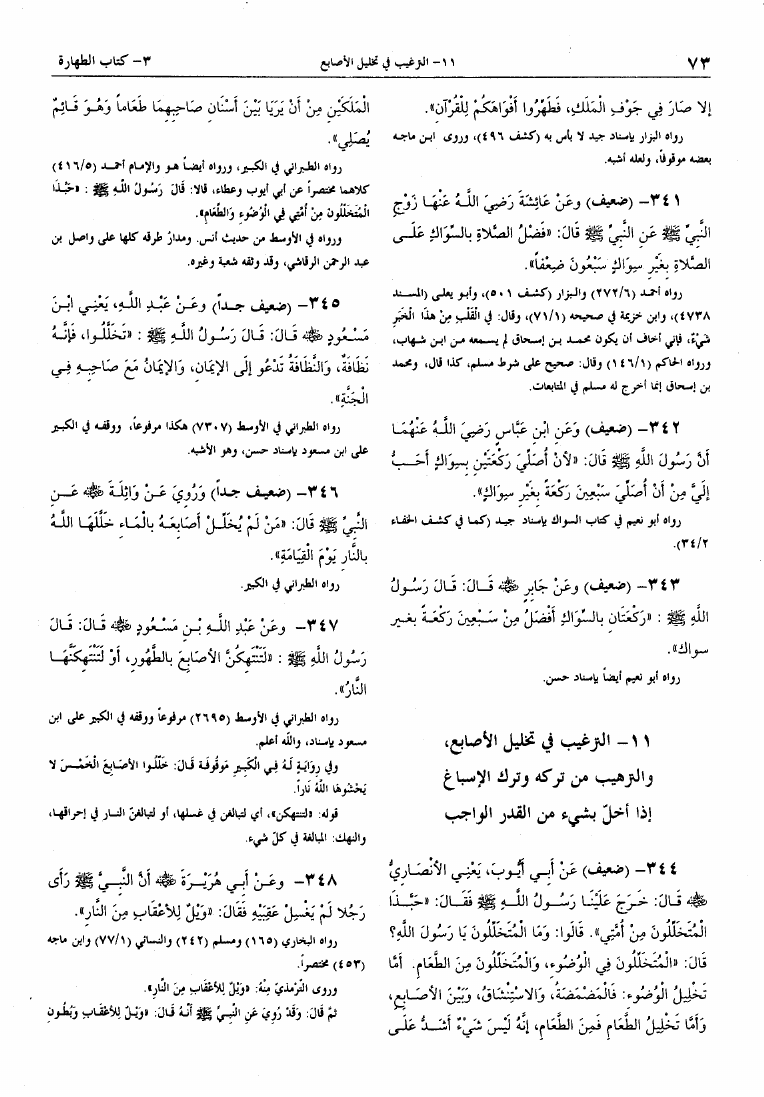 ٧٣
١١- الترغيب في تخليل الأصابع
٣- كتاب الطهارة
إلا صَارَ فِي جَوْفِ المَلَكِ، فَطَهِّرُوا أَفْوَاهَكُمْ لِلْقُرْآنِ».
رواه البزار بإسناد جيد لا بأس به (كشف ٤٩٦)، وروى ابن ماجه
بعضه موقوفاً، ولعله أشبه.
٣٤١- (ضعيف) وعَنْ عَائِشَةَ رَضِيَ اللَّهُ عَنْهَا زَوْجِ
النَّبِيِّ ﷺ عَنِ النَّبِيِّ ﷺ قَالَ: «فَضْلُ الصَّلاةِ بِالسِّوَاكِ عَلَى
الصَّلاةِ بِغَيْرِ سِوَاكٍ سَبْعُونَ ضِعْفاً».
رواه أحمد (٢٧٢/٦) والبزار (كشف ٥٠١)، وأبو يعلى (المسند
٤٧٣٨)، وابن خزيمة في صحيحه (٧١/١)، وقال: في القَلْبِ مِنْ هَذَا الخَبَرِ
شَيْءٌ، فإني أخاف أن يكون محمد بن إسحاق لم يسمعه من ابن شهاب،
ورواه الحاكم (١٤٦/١) وقال: صحيح على شرط مسلم، كذا قال، ومحمد
بن إسحاق إنما أخرج له مسلم في المتابعات.
٣٤٢- (ضعيف) وَعَنِ ابْنِ عَبَّاسٍ رَضِيَ اللَّهُ عَنْهُمَا
أَنَّ رَسُولَ اللَّهِ ﷺ قَالَ: «لأَنْ أُصَلِّيَ رَكْعَتَيْنِ بِسِوَاكٍ أَحَبُّ
إِلَيَّ مِنْ أَنْ أُصَلِّيَ سَبْعِينَ رَكْعَةً بِغَيْرِ سِوَاكٍ».
رواه أبو نعيم في كتاب السواك بإسناد جيد (كما في كشف الخفاء
٣٤/٢).
٣٤٣- (ضعيف) وعَنْ جَابِرٍ ﷺ قَالَ: قَالَ رَسُولُ
اللَّهِ ﷺ : «رَكْعَتَانِ بِالسِّوَاكِ أَفْضَلُ مِنْ سَبْعِينَ رَكْعَةً بِغَيْرِ
سِوَاكٍ».
رواه أبو نعيم أيضاً بإسناد حسن.
١١- الترغيب في تخليل الأصابع،
والترهيب من تركه وترك الإسباغ
إذا أخلّ بشيء من القدر الواجب
٣٤٤- (ضعيف) عَنْ أَبِي أَيُّوبَ، يَعْنِي الأَنْصَارِيَّ
قَالَ: خَرَجَ عَلَيْنَا رَسُولُ اللَّهِ ﷺ فَقَالَ: «حَبَّذَا
الْمُتَخَلِّلُونَ مِنْ أُمَّتِي». قَالُوا: وَمَا الْمُتَخَلِّلُونَ يَا رَسُولَ اللَّهِ؟
قَالَ: «الْمُتَخَلِّلُونَ فِي الْوُضُوءِ، وَالْمُتَخَلِّلُونَ مِنَ الطَّعَامِ. أَمَّا
تَخْلِيلُ الْوُضُوءِ: فَالْمَضْمَضَةُ، وَالاسْتِنْشَاقُ، وَبَيْنَ الأَصَابِعِ،
وَأَمَّا تَخْلِيلُ الطَّعَامِ فَمِنَ الطَّعَامِ، إِنَّهُ لَيْسَ شَيْءٌ أَشَدَّ عَلَى
الْمَلَكَيْنِ مِنْ أَنْ يَرَيَا بَيْنَ أَسْنَانِ صَاحِبِهِمَا طَعَاماً وَهُوَ قَائِمٌ
يُصَلِّي».
رواه الطبراني في الكبير، ورواه أيضاً هو والإمام أحمد (٤١٦/٥)
كلاهما مختصراً عن أبي أيوب وعطاء، قالا: قَالَ رَسُولُ اللَّهِ ﷺ : «حَبَّذَا
الْمُتَخَلِّلُونَ مِنْ أُمَّتِي فِي الْوُضُوءِ وَالطَّعَامِ».
ورواه في الأوسط من حديث أنس. ومدارُ طرقه كلها على واصل بن
عبد الرحمن الرقاشي، وقد وثقه شعبة وغيره.
٣٤٥- (ضعيف جداً) وعَنْ عَبْدِ اللَّهِ، يَعْنِي ابْنَ
مَسْعُودٍ قَالَ: قَالَ رَسُولُ اللَّهِ ﷺ : «تَخَلَّلُوا، فَإِنَّهُ
نَظَافَةٌ، وَالنَّظَافَةُ تَدْعُو إِلَى الإِيمَانِ، وَالإِيمَانُ مَعَ صَاحِبِهِ فِي
الْجَنَّةِ».
رواه الطبراني في الأوسط (٧٣٠٧) هكذا مرفوعاً، ووقفه في الكبير
على ابن مسعود بإسناد حسن، وهو الأشبه.
٣٤٦- (ضعيف جداً) وَرُوِيَ عَنْ وَاثِلَةَ عَنِ
النَّبِيِّ ﷺ قَالَ: «مَنْ لَمْ يُخَلِّلْ أَصَابِعَهُ بِالْمَاءِ خَلَّلَهَا اللَّهُ
بِالنَّارِ يَوْمَ الْقِيَامَةِ».
رواه الطبراني في الكبير.
٣٤٧- وعَنْ عَبْدِ اللَّهِ بْنِ مَسْعُودٍ قَالَ: قَالَ
رَسُولُ اللَّهِ ﷺ : «لَتَنْتَهِكُنَّ الأَصَابِعَ بِالطَّهُورِ، أَوْ لَتَنْتَهِكَنَّهَا
النَّارُ».
رواه الطبراني في الأوسط (٢٦٩٥) مرفوعاً ووقفه في الكبير على ابن
مسعود بإسناد، والله أعلم.
وفِي رِوَايَةٍ لَهُ فِي الْكَبِيرِ مَوْقُوفَة قَالَ: خَلِّلُوا الأَصَابِعَ الْخَمْسَ لا
يَحْشُوهَا اللَّهُ نَاراً.
قوله: «لتنتهكن»، أي لتبالغن في غسلها، أو لتبالغنّ النار في إحراقها،
والنهك: المبالغة في كلّ شيء.
٣٤٨- وعَنْ أَبِي هُرَيْرَةَ أَنَّ النَّبِيَّ ﷺ رَأَى
رَجُلا لَمْ يَغْسِلْ عَقِبَيْهِ فَقَالَ: «وَيْلٌ لِلأَعْقَابِ مِنَ النَّارِ».
رواه البخاري (١٦٥) ومسلم (٢٤٢) والنسائي (٧٧/١) وابن ماجه
(٤٥٣) مختصراً.
وروى الترمذيّ مِنْهُ: «وَيْلٌ لِلأَعْقَابِ مِنَ النَّارِ».
ثُمَّ قَالَ: وَقَدْ رُوِيَ عَنِ النَّبِيِّ ﷺ أَنَّهُ قَالَ: «وَيْلٌ لِلأَعْقَابِ وَبُطُونِ